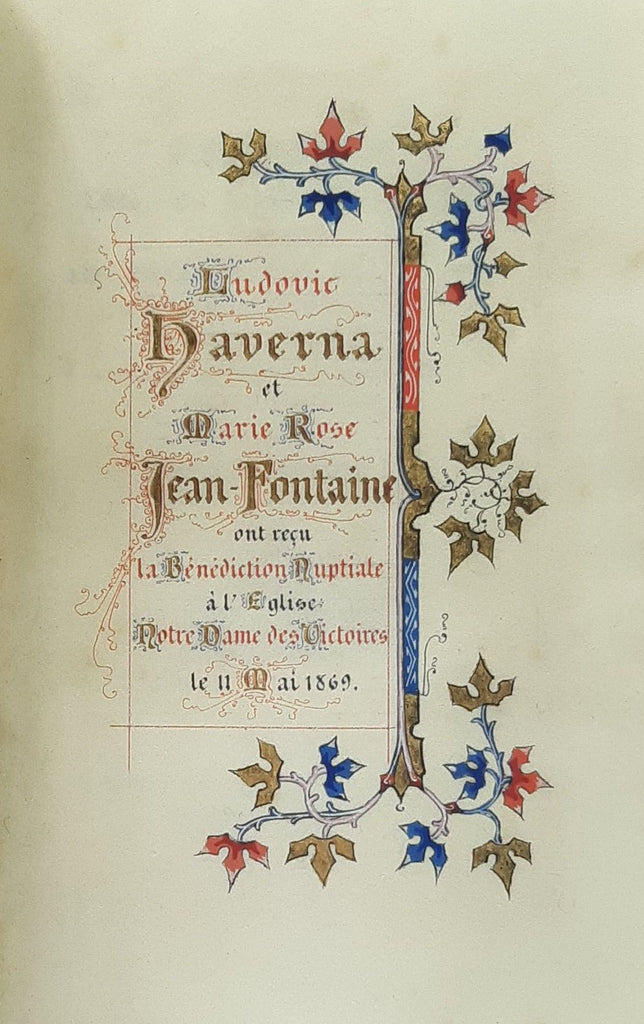 Ludovic
Haverna
et
Marie Rose
Jean-Fontaine
ont reçu
la Bénédiction Nuptiale
à l'Eglise
Notre Dame des Victoires
le 11 Mai 1869.